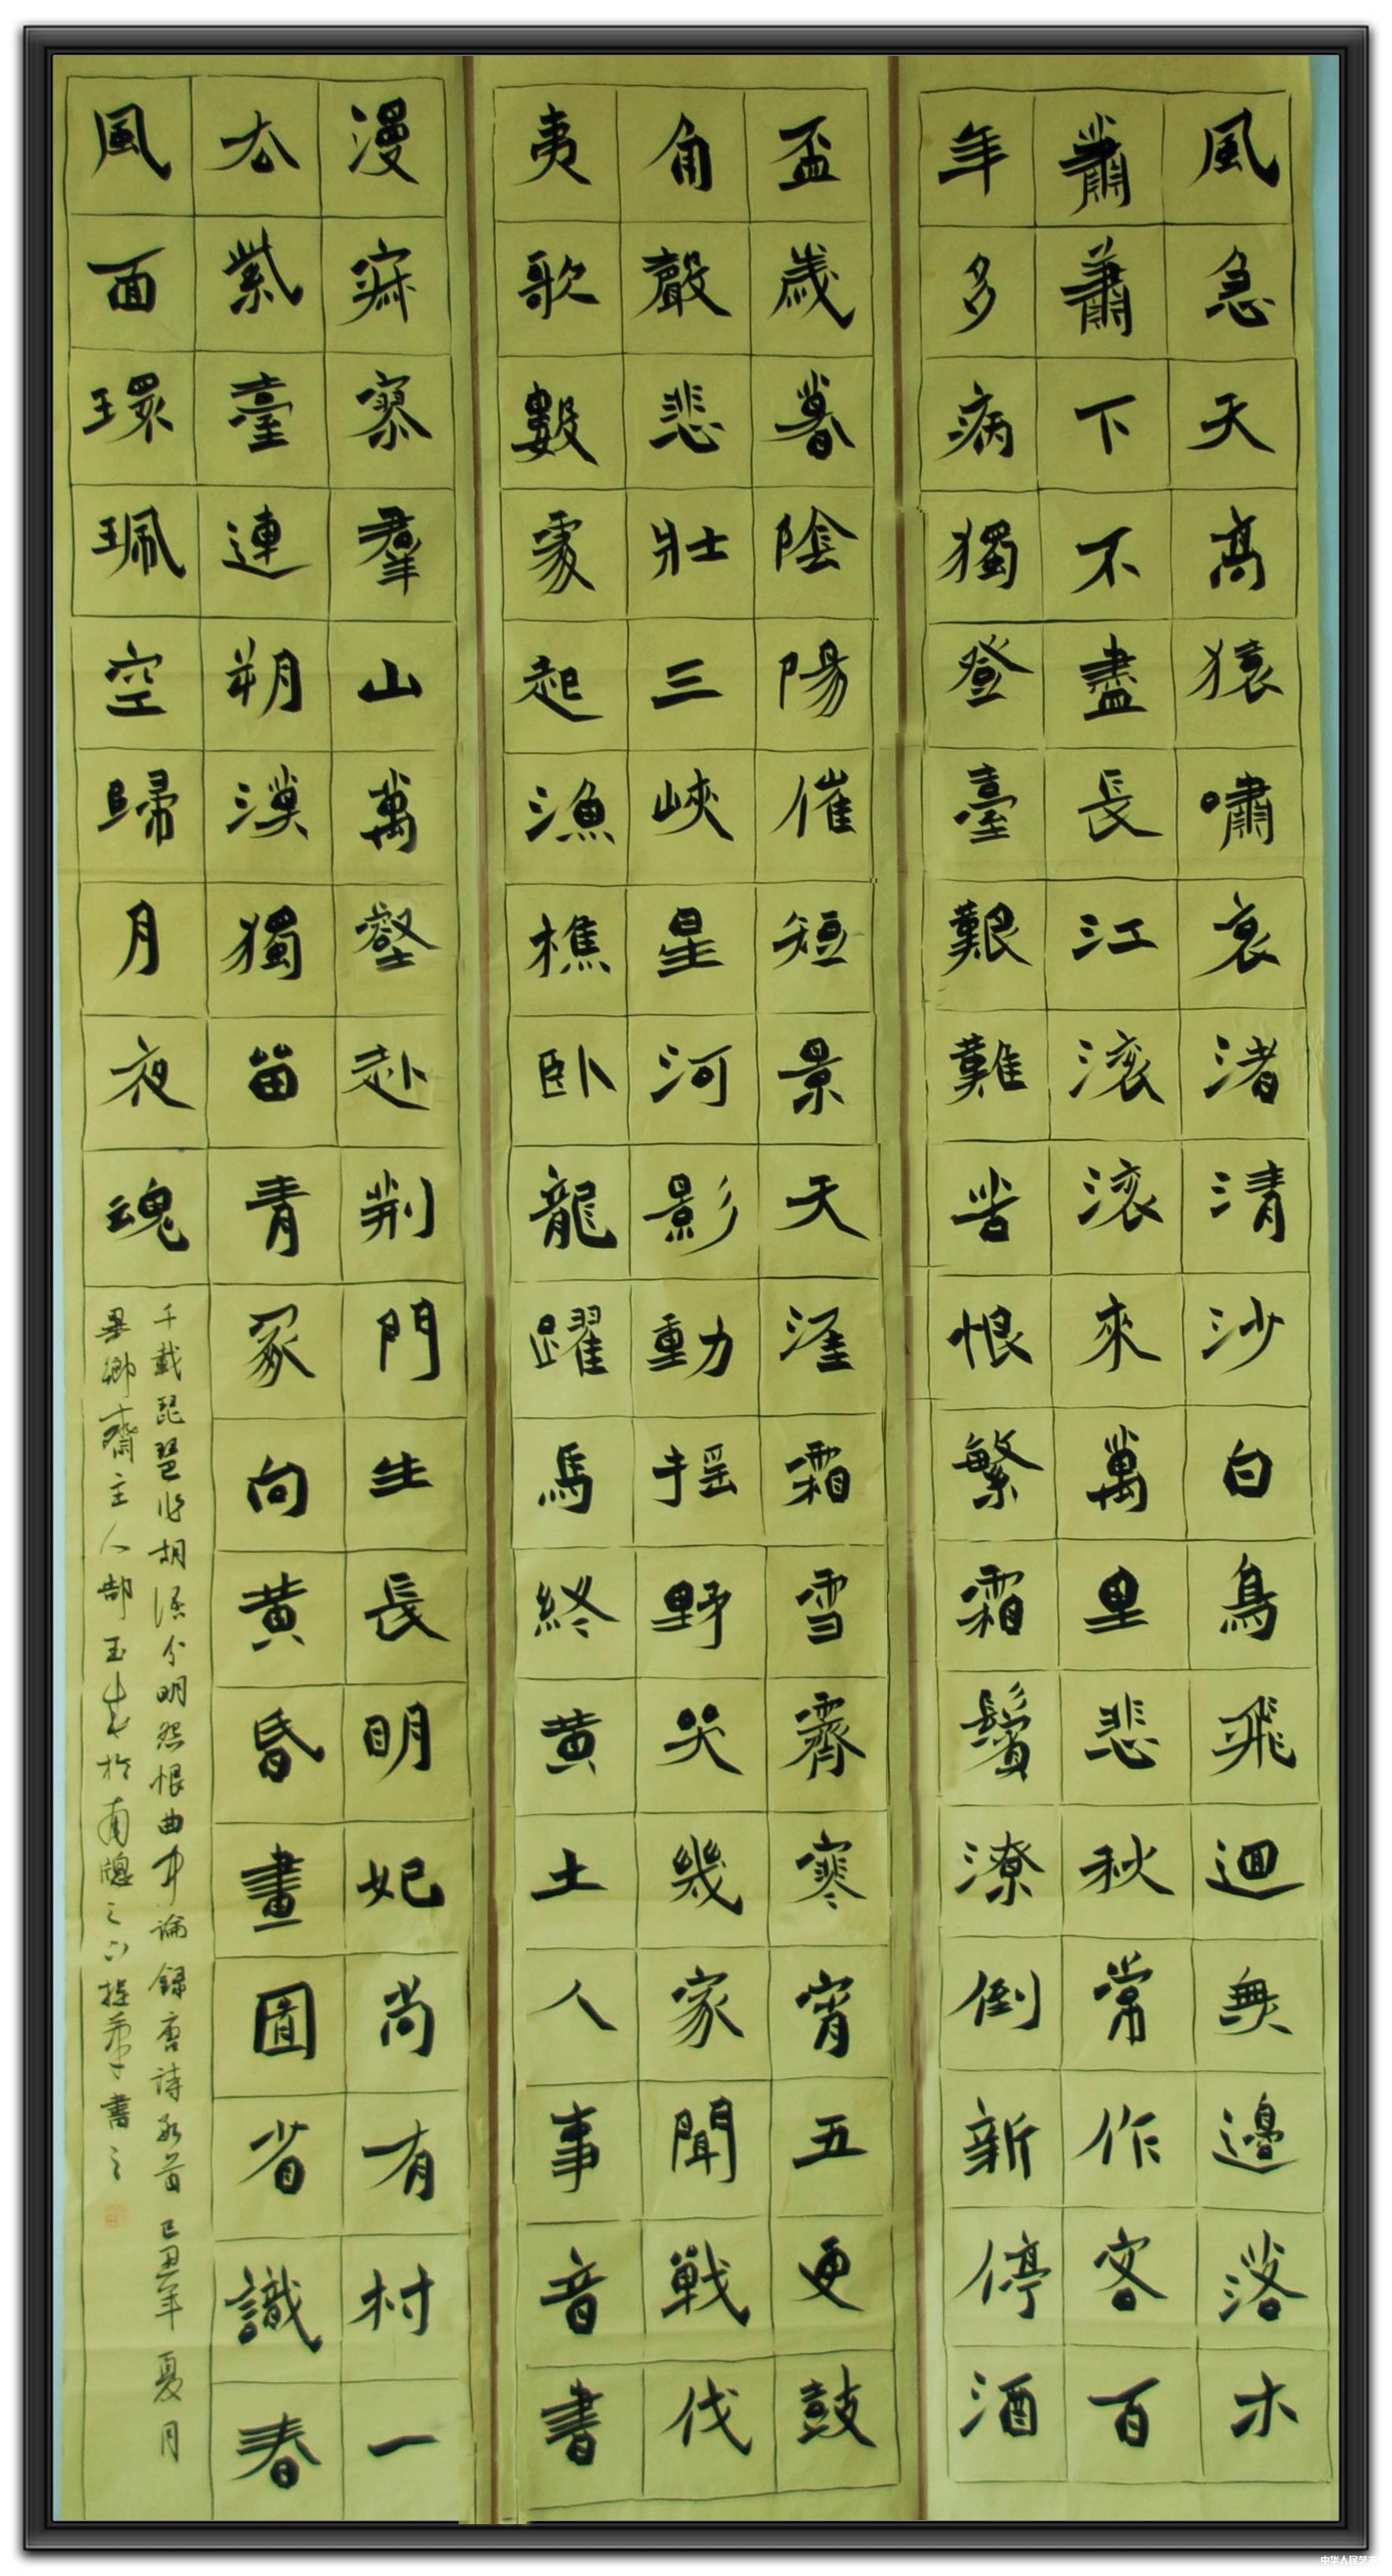 風急天高猿嘯哀渚清沙白鳥飛迴無邊落木
蕭蕭下不盡長江滾滾來萬里悲秋常作客百
年多病獨登臺艱難苦恨繁霜鬢潦倒新停酒
盃歲暮陰陽催短景天涯霜雪霽寒宵五更鼓
角聲悲壯三峽星河影動搖野哭幾家聞戰伐
夷歌數處起漁樵卧龍躍馬終黃土人事音書
漫寂寥羣山萬壑赴荊門生長明妃尚有村一
去紫臺連朔漠獨留青冢向黃昏畫圖省識春
風面環珮空歸月夜魂
千載琵琶作胡語分明怨恨曲中論 錄唐詩數首 己丑年夏月
齋主人郜玉於南牕之下捉筆書之
中华人民艺